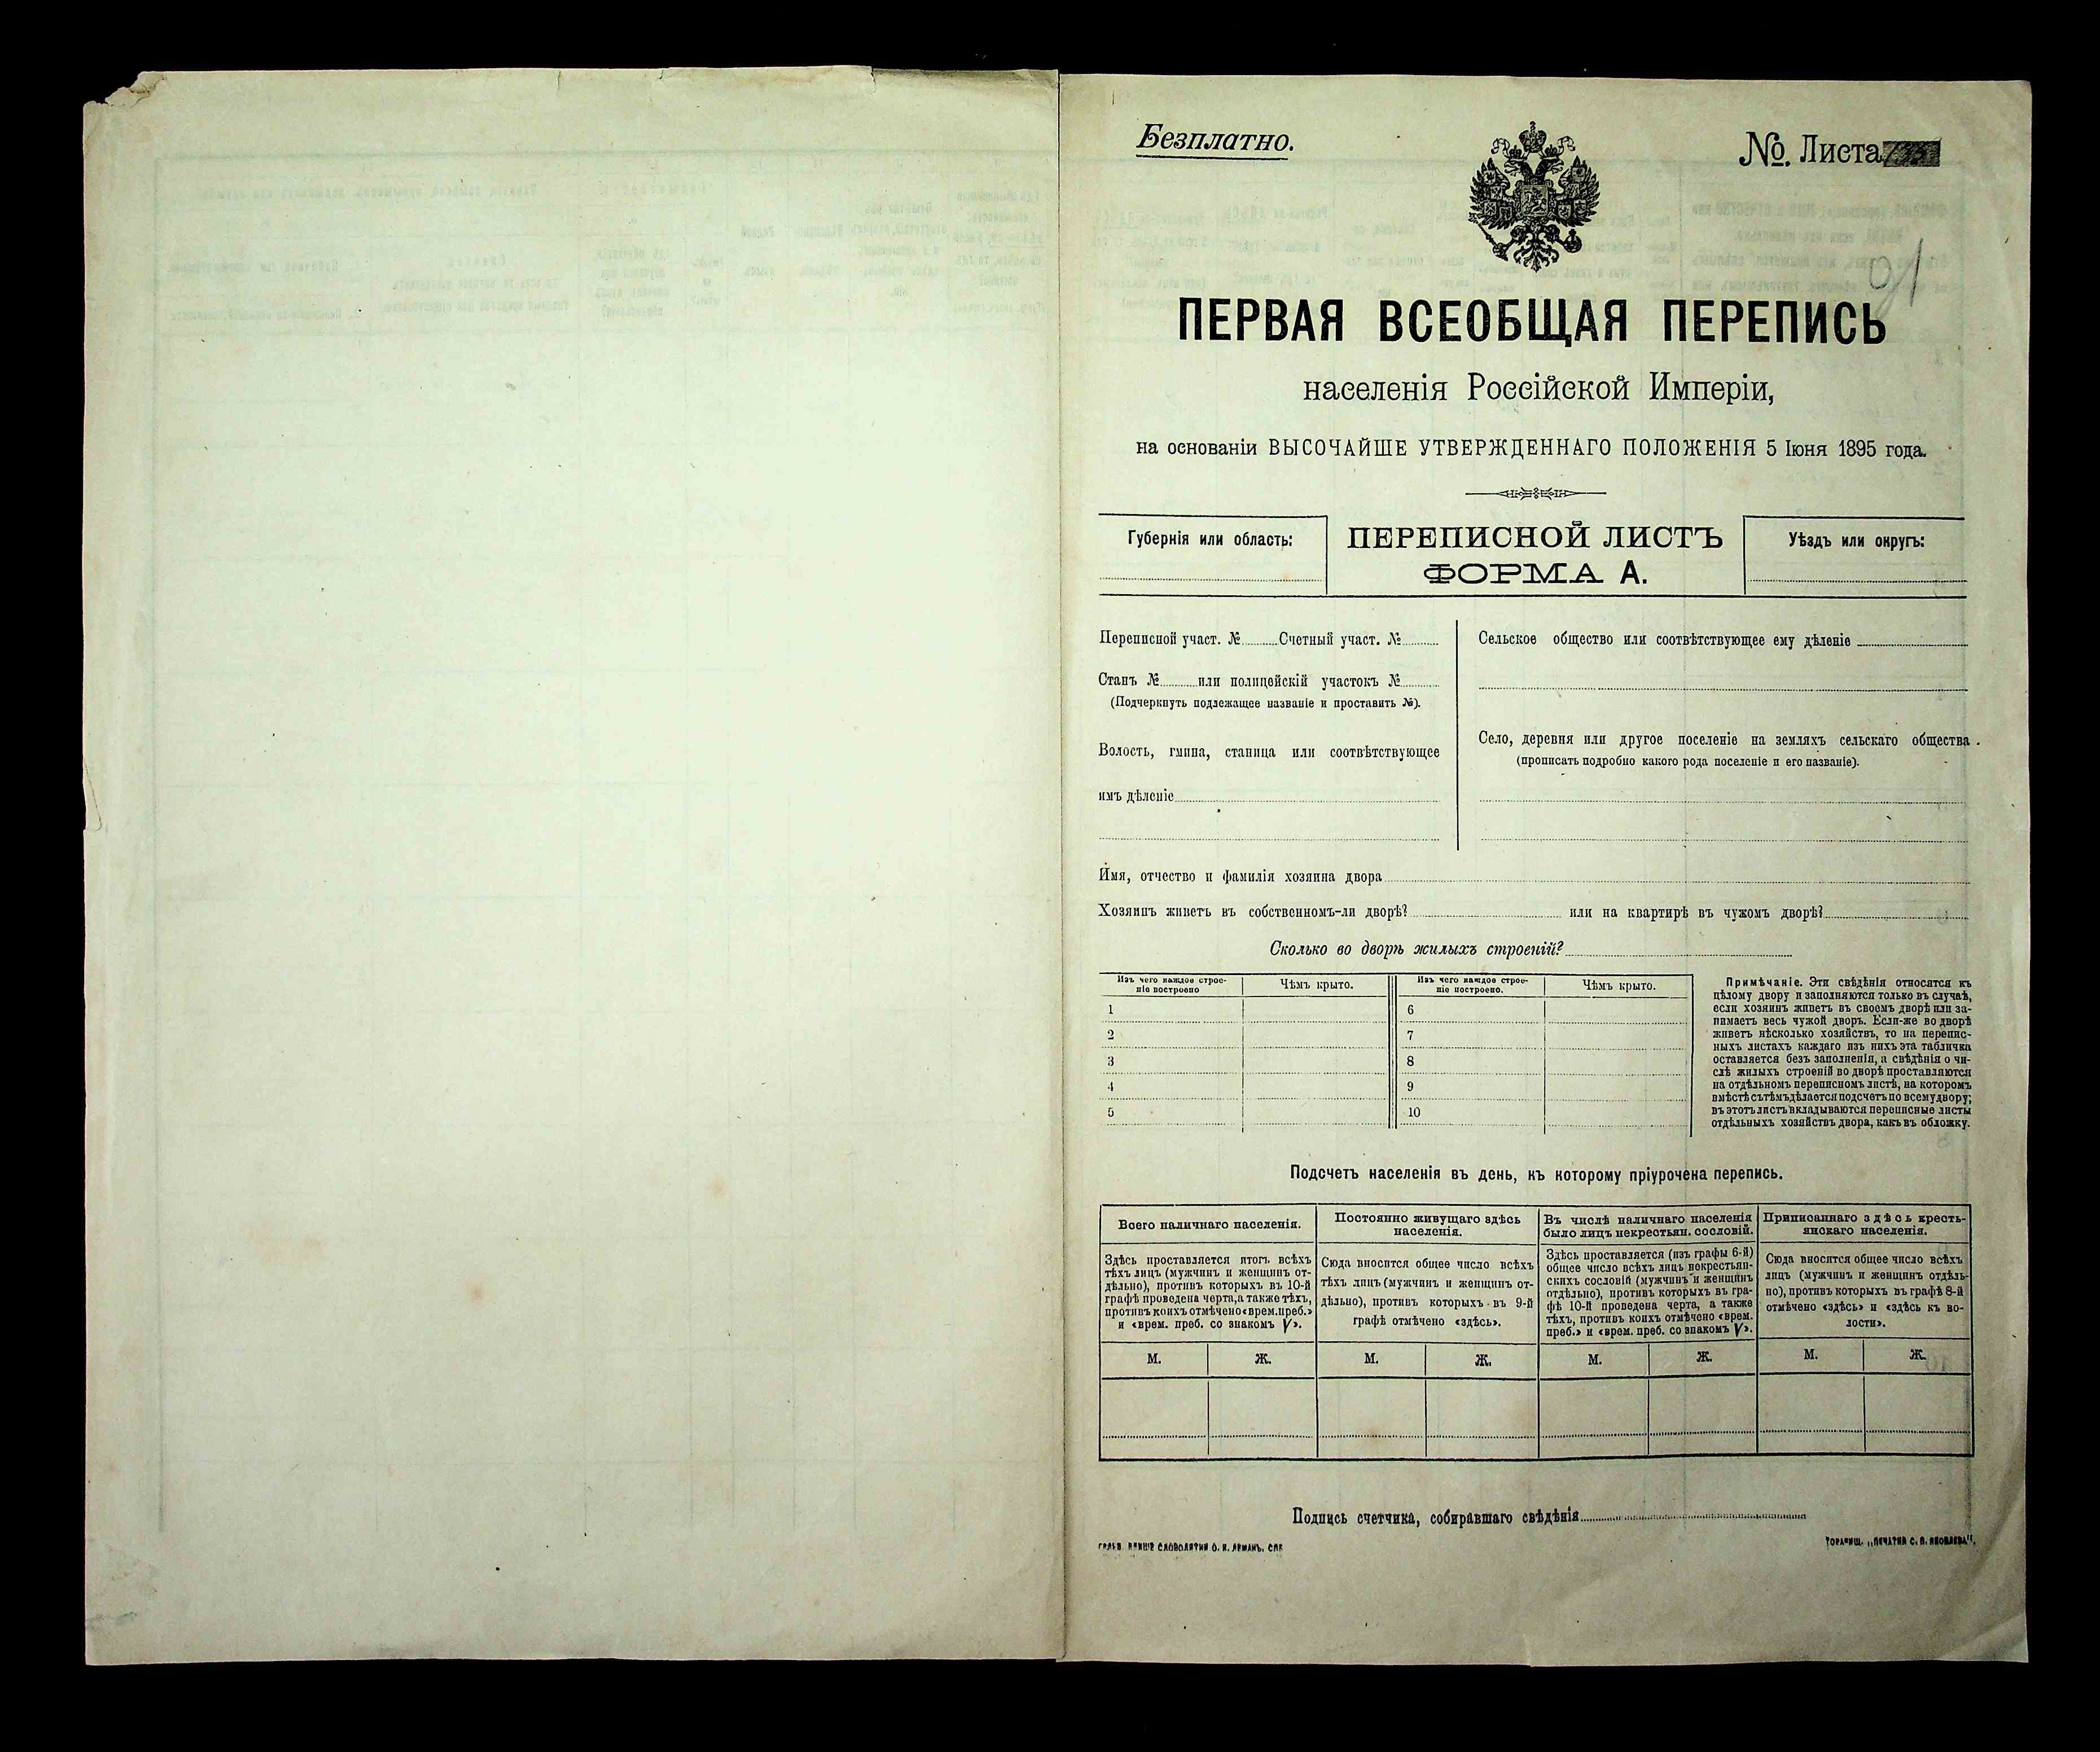 Безплатно.
№. Листа
91
ПЕРВАЯ ВСЕОБЩАЯ ПЕРЕПИСЬ
населенія Россійской Имперіи,
на основаніи ВЫСОЧАЙШЕ УТВЕРЖДЕННАГО ПОЛОЖЕНІЯ 5 Іюня 1895 года.
Губернія или область:
ПЕРЕПИСНОЙ ЛИСТЪ
ФОРМА А.
Уѣздъ или округъ:
Переписной участ. № Счетный участ. №
Станъ № или полицейскій участокъ №
(Подчеркнуть подлежащее названіе и проставить №).
Волость, гмина, станица или соотвѣтствующее
имъ дѣленіе
Сельское общество или соотвѣтствующее ему дѣленіе
Село, деревня или другое поселеніе на земляхъ сельскаго общества
(прописать подробно какого рода поселеніе и его названіе).
Имя, отчество и фамилія хозяина двора
Хозяинъ живетъ въ собственномъ-ли дворѣ? или на квартирѣ въ чужомъ дворѣ?
Сколько во дворѣ жилыхъ строеній?
Изъ чего каждое строе-
ніе построено
Чѣмъ крыто.
1
2
3
4
5
Изъ чего каждое строе-
ніе построено.
Чѣмъ крыто.
6
7
8
9
10
Примѣчаніе. Эти свѣдѣнія относятся къ
цѣлому двору и заполняются только въ случаѣ,
если хозяинъ живетъ въ своемъ дворѣ или за-
нимаетъ весь чужой дворъ. Если-же во дворѣ
живетъ нѣсколько хозяйствъ, то на перепис-
ныхъ листахъ каждаго изъ нихъ эта табличка
оставляется безъ заполненія, а свѣдѣнія о чи-
слѣ жилыхъ строеній во дворѣ проставляются
на отдѣльномъ переписномъ листѣ, на которомъ
вмѣстѣ съ тѣмъ дѣлается подсчетъ по всему двору;
въ этотъ листъ вкладываются переписные листы
отдѣльныхъ хозяйствъ двора, какъ въ обложку.
Подсчетъ населенія въ день, къ которому пріурочена перепись.
Всего наличнаго населенія.
Здѣсь проставляется итогъ всѣхъ
тѣхъ лицъ (мужчинъ и женщинъ от-
дѣльно), противъ которыхъ въ 10-й
графѣ проведена черта, а также тѣхъ,
противъ коихъ отмѣчено «врем. преб.»
и «врем. преб. со знакомъ V».
М. Ж.
Постоянно живущаго здѣсь
населенія.
Сюда вносится общее число всѣхъ
тѣхъ лицъ (мужчинъ и женщинъ от-
дѣльно), противъ которыхъ въ 9-й
графѣ отмѣчено «здѣсь».
М. Ж.
Въ числѣ наличнаго населенія
было лицъ некрестьян. сословій.
Здѣсь проставляется (изъ графы 6-й)
общее число всѣхъ лицъ некрестьян-
скихъ сословій (мужчинъ и женщинъ
отдѣльно), противъ которыхъ въ гра-
фѣ 10-й проведена черта, а также
тѣхъ, противъ коихъ отмѣчено «врем.
преб.» и «врем. преб. со знакомъ V».
М. Ж.
Приписаннаго здѣсь кресть-
янскаго населенія.
Сюда вносится общее число всѣхъ
лицъ (мужчинъ и женщинъ отдѣль-
но), противъ которыхъ въ графѣ 8-й
отмѣчено «здѣсь» и «здѣсь къ во-
лости».
М. Ж.
Подпись счетчика, собиравшаго свѣдѣнія
СЛОВОЛИТНИ О. И. ЛЕМАНЪ, СПБ
„ПЕЧАТНЯ С. П. ЯКОВЛЕВА".